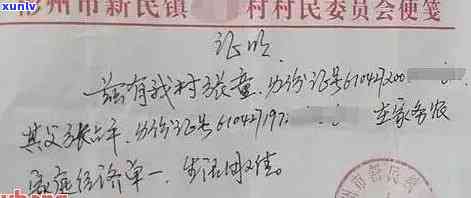 xunlv
彬州市新民镇 村村民委员会便笺
证明
兹有我村张童,身份证号610427200
其父张占平,身份证号61042719 在家务农
家庭经济单一,生活困难。